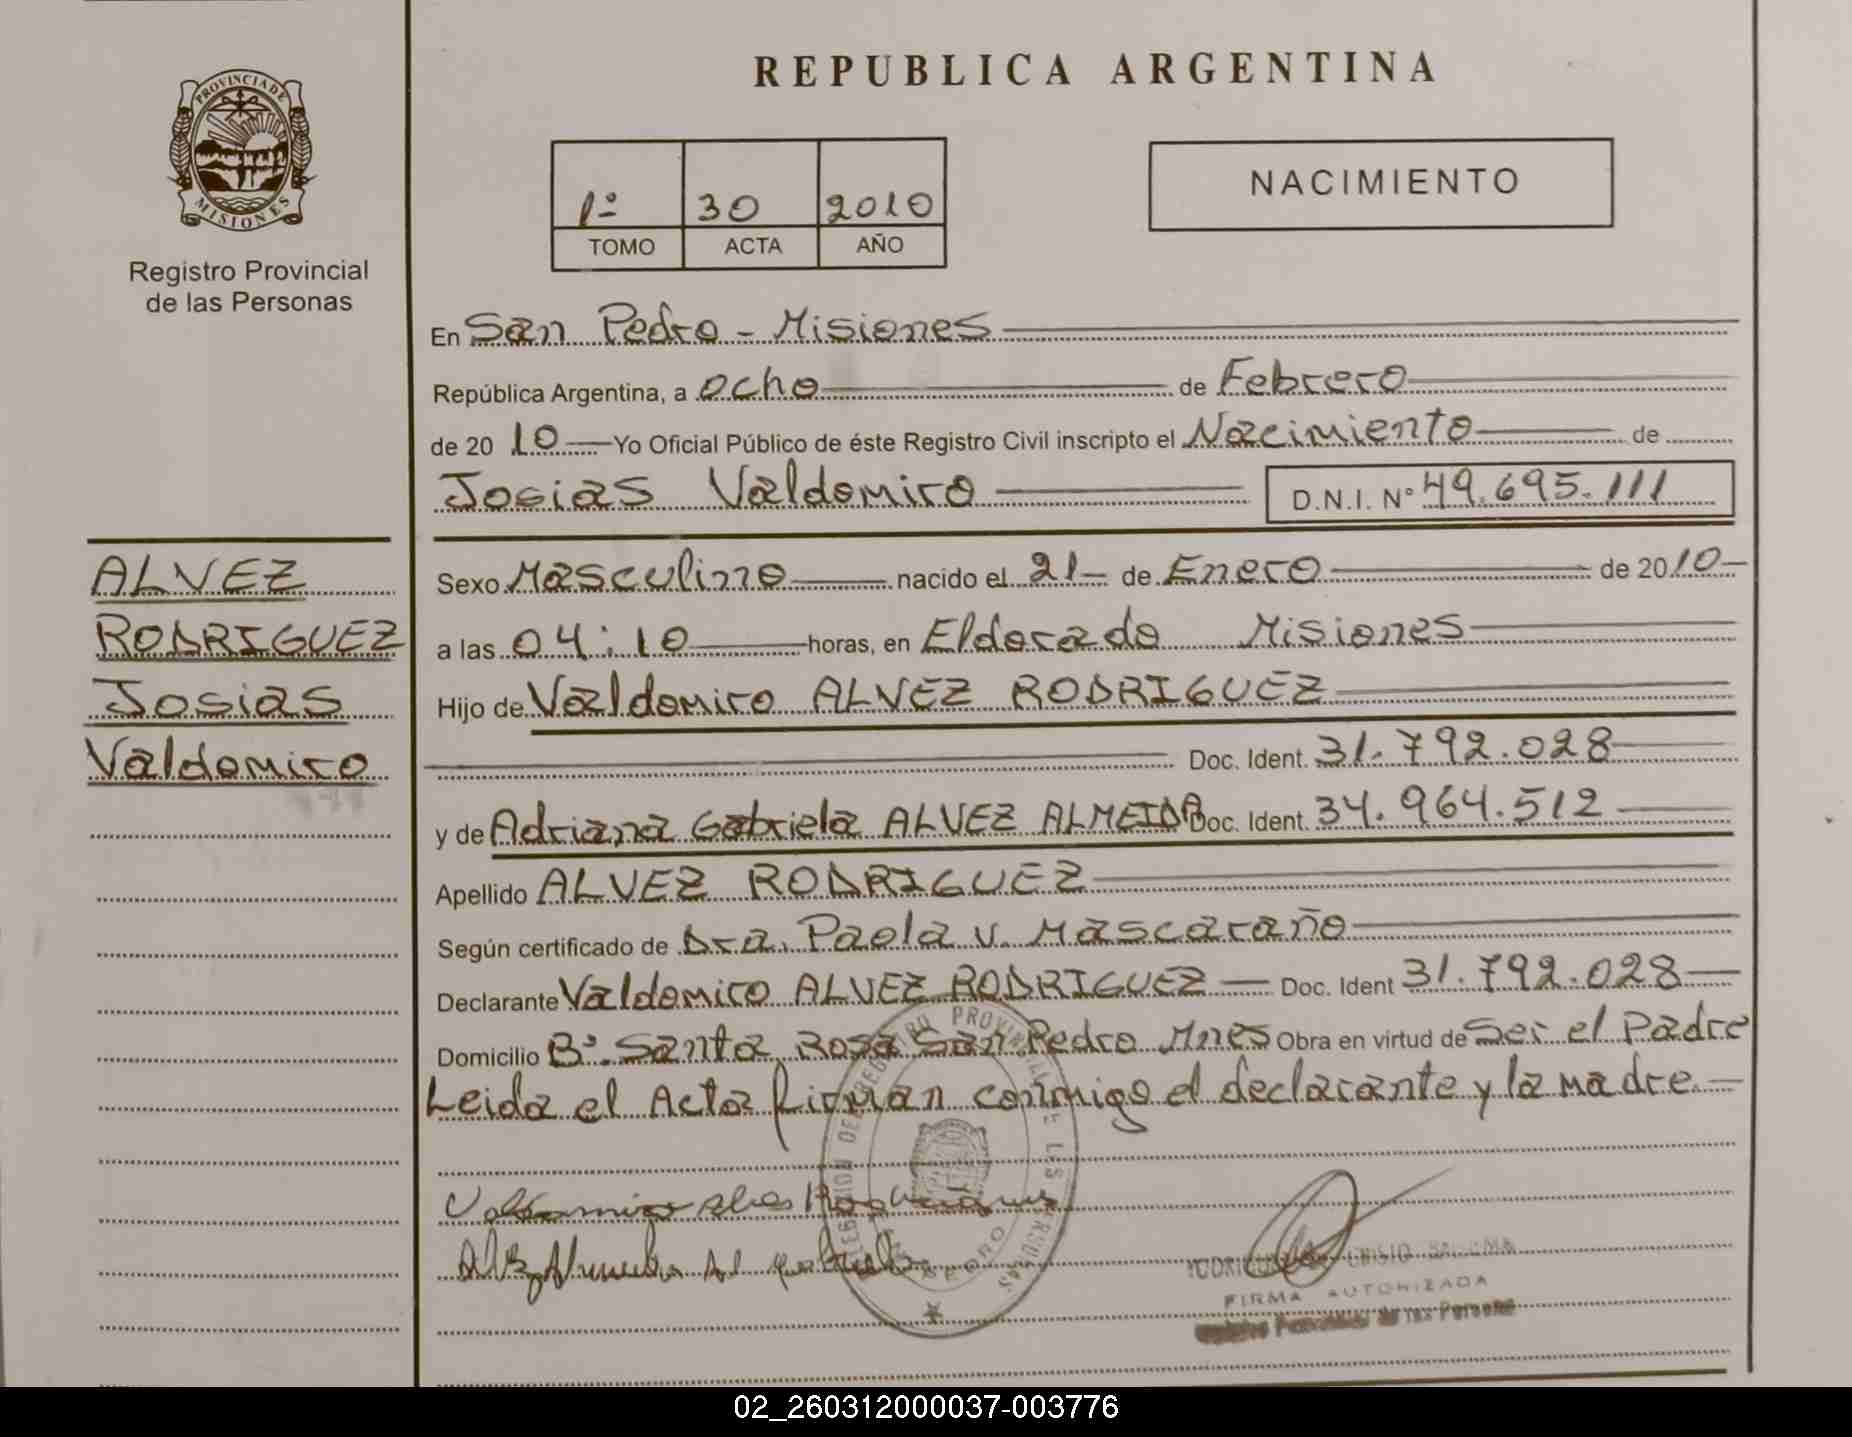 PROVINCIA DE
MISIONES
Registro Provincial
de las Personas
ALVEZ
RODRIGUEZ
Josias
Valdomiro
REPUBLICA ARGENTINA
1º 30 2010
TOMO ACTA AÑO
NACIMIENTO
En San Pedro - Misiones
República Argentina, a ocho de Febrero
de 2010 Yo Oficial Público de éste Registro Civil inscripto el Nacimiento de
Josias Valdomiro D.N.I. Nº 49.695.111
Sexo Masculino nacido el 21 de Enero de 2010
a las 04:10 horas, en Eldorado Misiones
Hijo de Valdomiro ALVEZ RODRIGUEZ
Doc. Ident. 31.792.028
y de Adriana Gabriela ALVEZ ALMEIDA Doc. Ident. 34.964.512
Apellido ALVEZ RODRIGUEZ
Según certificado de Dra. Paola V. Mascaraño
Declarante Valdomiro ALVEZ RODRIGUEZ Doc. Ident 31.792.028
Domicilio Bº. Santa Rosa San Pedro Mnes Obra en virtud de Ser el Padre
Leida el Acta firman conmigo el declarante y la madre.
FIRMA AUTORIZADA
02_260312000037-003776